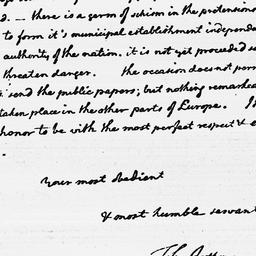 2. — there is a germ of schism in the pretensions
to form it's municipal establishment independa
authority of the nation. it is not yet proceeded s
threaten danger. the occasion does not perm
send the public papers; but nothing remarka
taken place in the other parts of Europe. I
honor to be with the most perfect respect & e
Your most obedient
& most humble servant
Th